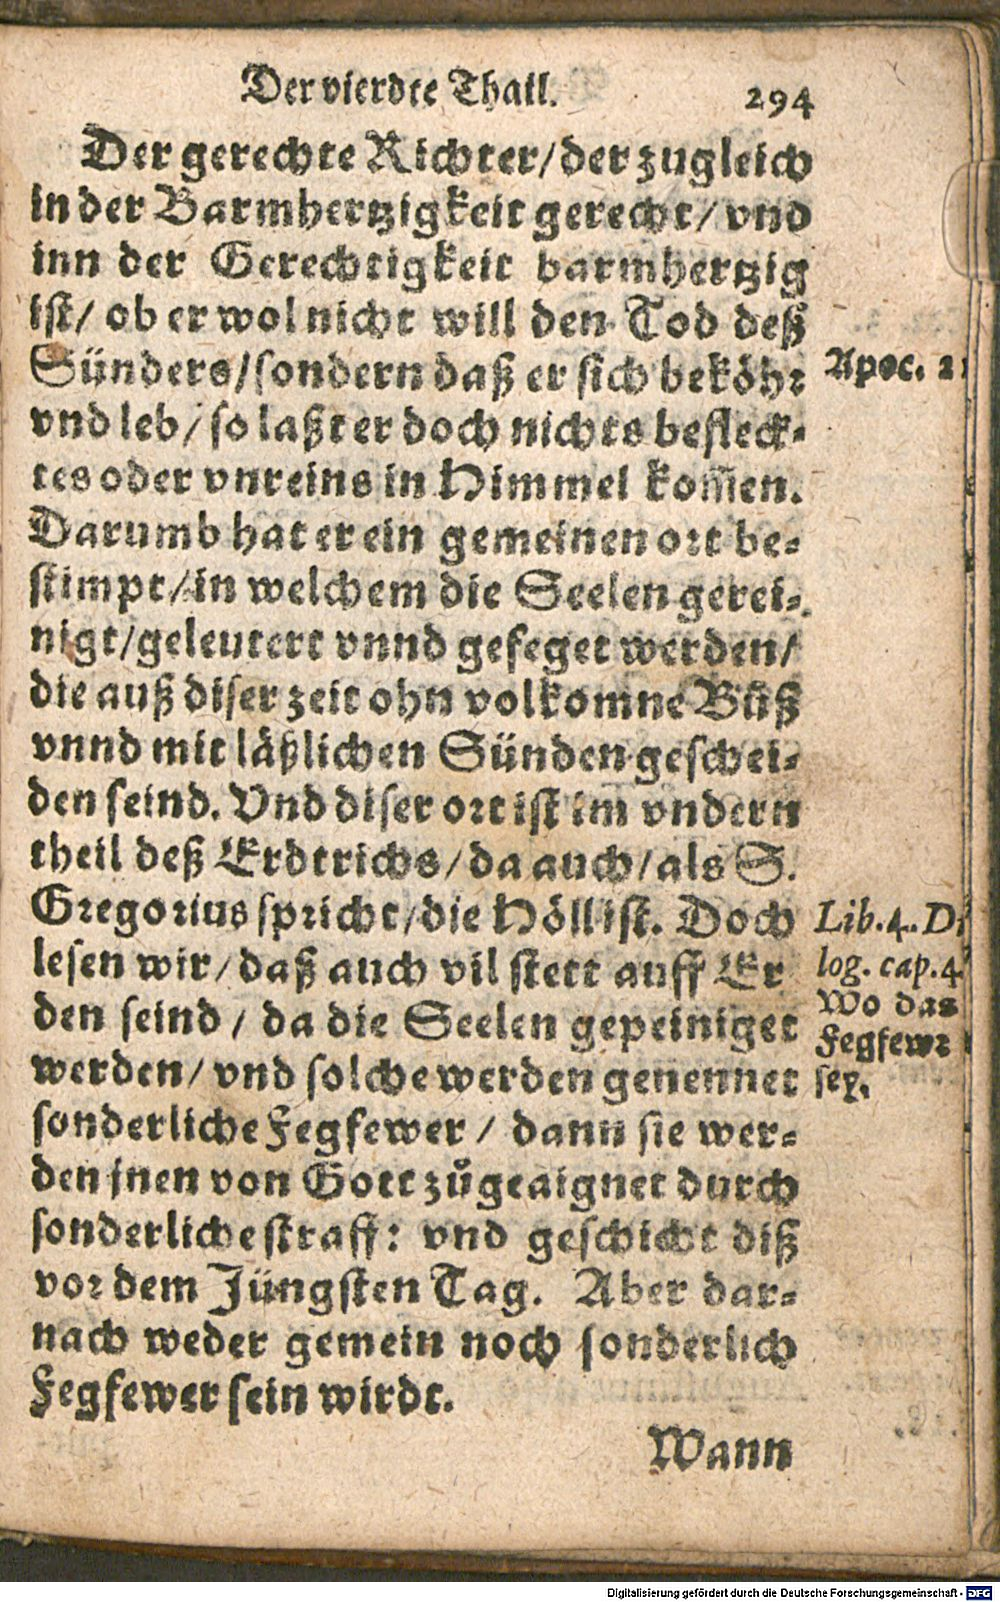 Der vierdte Thail.
294
Der gerechte Richter/ der zugleich
in der Barmhertzigkeit gerecht/ vnd
inn der Gerechtigkeit barmhertzig
ist/ ob er wol nicht will den Tod deß
Sünders/ sondern daß er sich beköhr
vnd leb/ so laßt er doch nichts befleck-
tes oder vnreins in Himmel kom̃en.
Darumb hat er ein gemeinen ort be-
stimpt/ in welchem die Seelen gerei-
nigt/ geleutert vnnd gefeget werden/
die auß diser zeit ohn volkomne Bůß
vnnd mit läßlichen Sünden geschei-
den seind. Vnd diser ort ist im vndern
theil deß Erdtrichs/ da auch/ als S.
Gregorius spricht/ die Höll ist. Doch
lesen wir/ daß auch vil stett auff Er
den seind/ da die Seelen gepeiniget
werden/ vnd solche werden genennet
sonderliche Fegfewer/ dann sie wer-
den jnen von Gott zůgeaignet durch
sonderliche straff: vnd geschicht diß
vor dem Jüngsten Tag. Aber dar-
nach weder gemein noch sonderlich
Fegfewer sein wirdt.
Wann
Apoc. 21
Lib. 4. Di
log. cap. 4
Wo das
Fegfewr
sey.
Digitalisierung gefördert durch die Deutsche Forschungsgemeinschaft - DFG